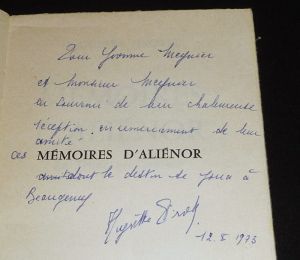 Pour Yvonne Meynier
et Monsieur Meynier
en souvenir de leur chaleureuse
réception, en remerciement de leur
amitié
ces MÉMOIRES D'ALIÉNOR
dont le destin se joua à
Beaugency
12.5 1973